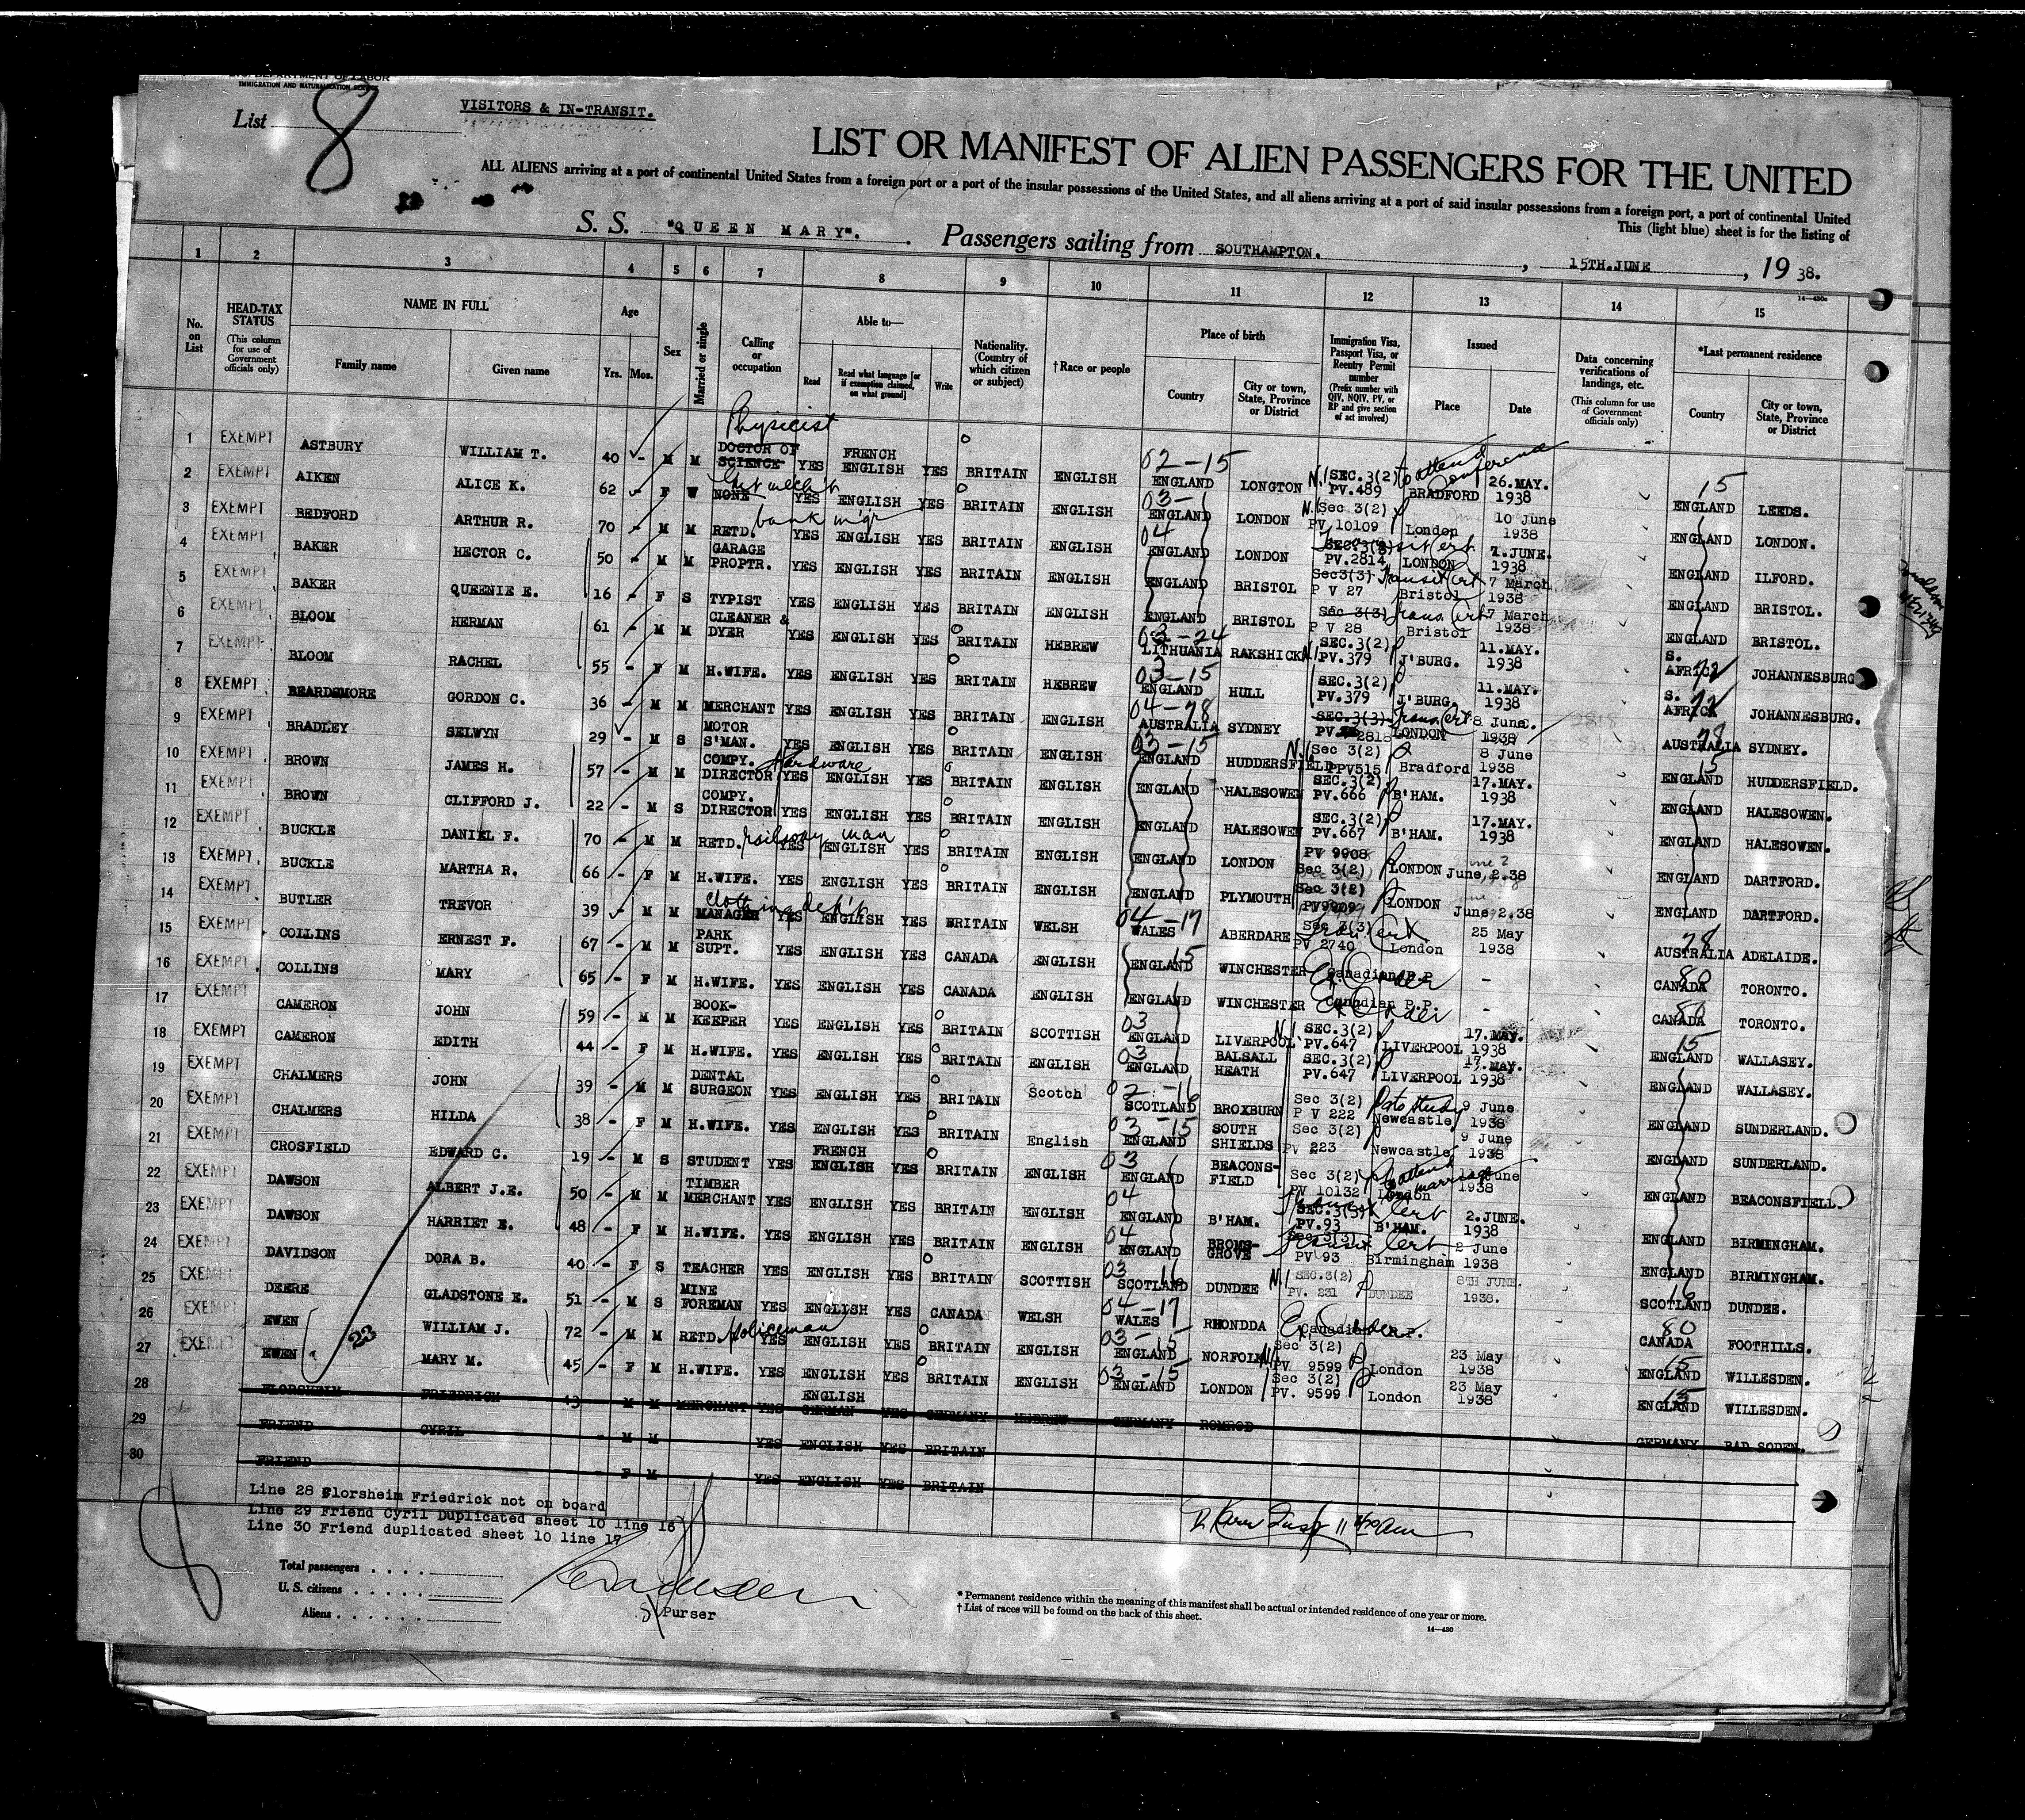 U.S. DEPARTMENT OF LABOR
IMMIGRATION AND NATURALIZATION SERVICE
List 8
VISITORS & IN-TRANSIT.
LIST OR MANIFEST OF ALIEN PASSENGERS FOR THE UNITED
ALL ALIENS arriving at a port of continental United States from a foreign port or a port of the insular possessions of the United States, and all aliens arriving at a port of said insular possessions from a foreign port, a port of continental United
This (light blue) sheet is for the listing of
S. S. "QUEEN MARY". Passengers sailing from SOUTHAMPTON. , 15TH.JUNE , 19 38.
14—430c
1 2 3 4 5 6 7 8 9 10 11 12 13 14 15
No. on List
HEAD-TAX STATUS (This column for use of Government officials only)
NAME IN FULL
Family name Given name
Age
Yrs. Mos.
Sex
Married or single
Calling or occupation
Able to—
Read Read what language [or if exemption claimed, on what ground] Write
Nationality. (Country of which citizen or subject)
†Race or people
Place of birth
Country City or town, State, Province or District
Immigration Visa, Passport Visa, or Reentry Permit number (Prefix number with QIV, NQIV, PV, or RP and give section of act involved)
Issued
Place Date
Data concerning verifications of landings, etc. (This column for use of Government officials only)
*Last permanent residence
Country City or town, State, Province or District
1 EXEMPT ASTBURY WILLIAM T. 40 - M M Physicist DOCTOR OF SCIENCE YES FRENCH ENGLISH YES BRITAIN ENGLISH 02-15 ENGLAND LONGTON SEC.3(2) PV.489 to attend Conference BRADFORD 26.MAY. 1938 15 ENGLAND LEEDS.
2 EXEMPT AIKEN ALICE K. 62 - F W NONE YES ENGLISH YES BRITAIN ENGLISH 03- ENGLAND LONDON Sec 3(2) PV 10109 London 10 June 1938 ENGLAND LONDON.
3 EXEMPT BEDFORD ARTHUR R. 70 - M M RETD. bank m'gr YES ENGLISH YES BRITAIN ENGLISH 04 ENGLAND LONDON SEC.3(3) Transit Cert PV.2814 LONDON 7.JUNE. 1938 ENGLAND ILFORD.
4 EXEMPT BAKER HECTOR C. 50 - M M GARAGE PROPTR. YES ENGLISH YES BRITAIN ENGLISH ENGLAND BRISTOL Sec3(3) Transit Cert P V 27 Bristol 7 March 1938 ENGLAND BRISTOL.
5 EXEMPT BAKER QUEENIE E. 16 - F S TYPIST YES ENGLISH YES BRITAIN ENGLISH ENGLAND BRISTOL Sec 3(3) Trans Cert P V 28 Bristol 7 March 1938 ENGLAND BRISTOL.
6 EXEMPT BLOOM HERMAN 61 - M M CLEANER & DYER YES ENGLISH YES BRITAIN HEBREW 03-24 LITHUANIA RAKSHICK SEC.3(2) PV.379 J'BURG. 11.MAY. 1938 S. AFRICA 72 JOHANNESBURG
7 EXEMPT BLOOM RACHEL 55 - F M H.WIFE. YES ENGLISH YES BRITAIN HEBREW 03-15 ENGLAND HULL SEC.3(2) PV.379 J'BURG. 11.MAY. 1938 S. AFRICA 72 JOHANNESBURG.
8 EXEMPT BEARDSMORE GORDON C. 36 - M M MERCHANT YES ENGLISH YES BRITAIN ENGLISH 04-78 AUSTRALIA SYDNEY SEC.3(3) Trans Cert PV. 2818 LONDON 8 June. 1938 2818 78 AUSTRALIA SYDNEY.
9 EXEMPT BRADLEY SELWYN 29 - M S MOTOR S'MAN. YES ENGLISH YES BRITAIN ENGLISH 03-15 ENGLAND HUDDERSFIELD Sec 3(2) PPV515 Bradford 8 June 1938 15 ENGLAND HUDDERSFIELD.
10 EXEMPT BROWN JAMES H. 57 - M M COMPY. DIRECTOR Hardware YES ENGLISH YES BRITAIN ENGLISH ENGLAND HALESOWEN SEC.3(2) PV.666 B'HAM. 17.MAY. 1938 ENGLAND HALESOWEN.
11 EXEMPT BROWN CLIFFORD J. 22 - M S COMPY. DIRECTOR YES ENGLISH YES BRITAIN ENGLISH ENGLAND HALESOWEN SEC.3(2) PV.667 B'HAM. 17.MAY. 1938 ENGLAND HALESOWEN.
12 EXEMPT BUCKLE DANIEL F. 70 - M M RETD. railway man YES ENGLISH YES BRITAIN ENGLISH ENGLAND LONDON PV 9908 Sec 3(2) LONDON June 2.38 ENGLAND DARTFORD.
13 EXEMPT BUCKLE MARTHA R. 66 - F M H.WIFE. YES ENGLISH YES BRITAIN ENGLISH ENGLAND PLYMOUTH Sec 3(2) PV9909 LONDON June 2.38 ENGLAND DARTFORD.
14 EXEMPT BUTLER TREVOR 39 - M M MANAGER clothing dep't YES ENGLISH YES BRITAIN WELSH 04-17 WALES ABERDARE Sec 3(3) Tran Cert PV 2740 London 25 May 1938 78 AUSTRALIA ADELAIDE.
15 EXEMPT COLLINS ERNEST F. 67 - M M PARK SUPT. YES ENGLISH YES CANADA ENGLISH 15 ENGLAND WINCHESTER Canadian P.P. Ex Order - 80 CANADA TORONTO.
16 EXEMPT COLLINS MARY 65 - F M H.WIFE. YES ENGLISH YES CANADA ENGLISH ENGLAND WINCHESTER Canadian P.P. Ex Order - 80 CANADA TORONTO.
17 EXEMPT CAMERON JOHN 59 - M M BOOK-KEEPER YES ENGLISH YES BRITAIN SCOTTISH 03 ENGLAND LIVERPOOL SEC.3(2) PV.647 LIVERPOOL 17.MAY. 1938 15 ENGLAND WALLASEY.
18 EXEMPT CAMERON EDITH 44 - F M H.WIFE. YES ENGLISH YES BRITAIN ENGLISH 03 ENGLAND BALSALL HEATH SEC.3(2) PV.647 LIVERPOOL 17.MAY. 1938 ENGLAND WALLASEY.
19 EXEMPT CHALMERS JOHN 39 - M M DENTAL SURGEON YES ENGLISH YES BRITAIN Scotch 02-16 SCOTLAND BROXBURN Sec 3(2) P V 222 to study Newcastle 9 June 1938 ENGLAND SUNDERLAND.
20 EXEMPT CHALMERS HILDA 38 - F M H.WIFE. YES ENGLISH YES BRITAIN English 03-15 ENGLAND SOUTH SHIELDS Sec 3(2) PV 223 Newcastle 9 June 1938 ENGLAND SUNDERLAND.
21 EXEMPT CROSFIELD EDWARD C. 19 - M S STUDENT YES FRENCH ENGLISH YES BRITAIN ENGLISH 03 ENGLAND BEACONS-FIELD Sec 3(2) PV 10132 to attend marriage London June 1938 ENGLAND BEACONSFIELD
22 EXEMPT DAWSON ALBERT J.E. 50 - M M TIMBER MERCHANT YES ENGLISH YES BRITAIN ENGLISH 04 ENGLAND B'HAM. SEC.3(3) Transit Cert PV.93 B'HAM. 2.JUNE. 1938 ENGLAND BIRMINGHAM.
23 EXEMPT DAWSON HARRIET E. 48 - F M H.WIFE. YES ENGLISH YES BRITAIN ENGLISH 04 ENGLAND BROMS-GROVE Sec 3(3) Transit Cert PV 93 Birmingham 2 June 1938 ENGLAND BIRMINGHAM.
24 EXEMPT DAVIDSON DORA B. 40 - F S TEACHER YES ENGLISH YES BRITAIN SCOTTISH 03 16 SCOTLAND DUNDEE SEC.3(2) PV. 231 DUNDEE 8TH JUNE. 1938. 16 SCOTLAND DUNDEE.
25 EXEMPT DEERE GLADSTONE E. 51 - M S MINE FOREMAN YES ENGLISH YES CANADA WELSH 04-17 WALES RHONDDA Canadian P.P. Ex Order 80 CANADA FOOTHILLS.
26 EXEMPT EWEN WILLIAM J. 72 - M M RETD. Policeman YES ENGLISH YES BRITAIN ENGLISH 03-15 ENGLAND NORFOLK Sec 3(2) PV 9599 London 23 May 1938 15 ENGLAND WILLESDEN.
27 EXEMPT EWEN MARY M. 45 - F M H.WIFE. YES ENGLISH YES BRITAIN ENGLISH 03-15 ENGLAND LONDON Sec 3(2) PV. 9599 London 23 May 1938 15 ENGLAND WILLESDEN.
23
28 FLORSHEIM FRIEDRICH 43 M M MERCHANT YES ENGLISH GERMAN YES GERMANY HEBREW GERMANY ROMROD GERMANY BAD SODEN.
29 FRIEND CYRIL - M M YES ENGLISH YES BRITAIN
30 FRIEND - F M YES ENGLISH YES BRITAIN
Line 28 Florsheim Friedrick not on board
Line 29 Friend Cyril Duplicated sheet 10 line 16
Line 30 Friend duplicated sheet 10 line 17
Total passengers . . . .
U. S. citizens . . . . .
Aliens . . . . . .
Purser
* Permanent residence within the meaning of this manifest shall be actual or intended residence of one year or more.
† List of races will be found on the back of this sheet.
14—430